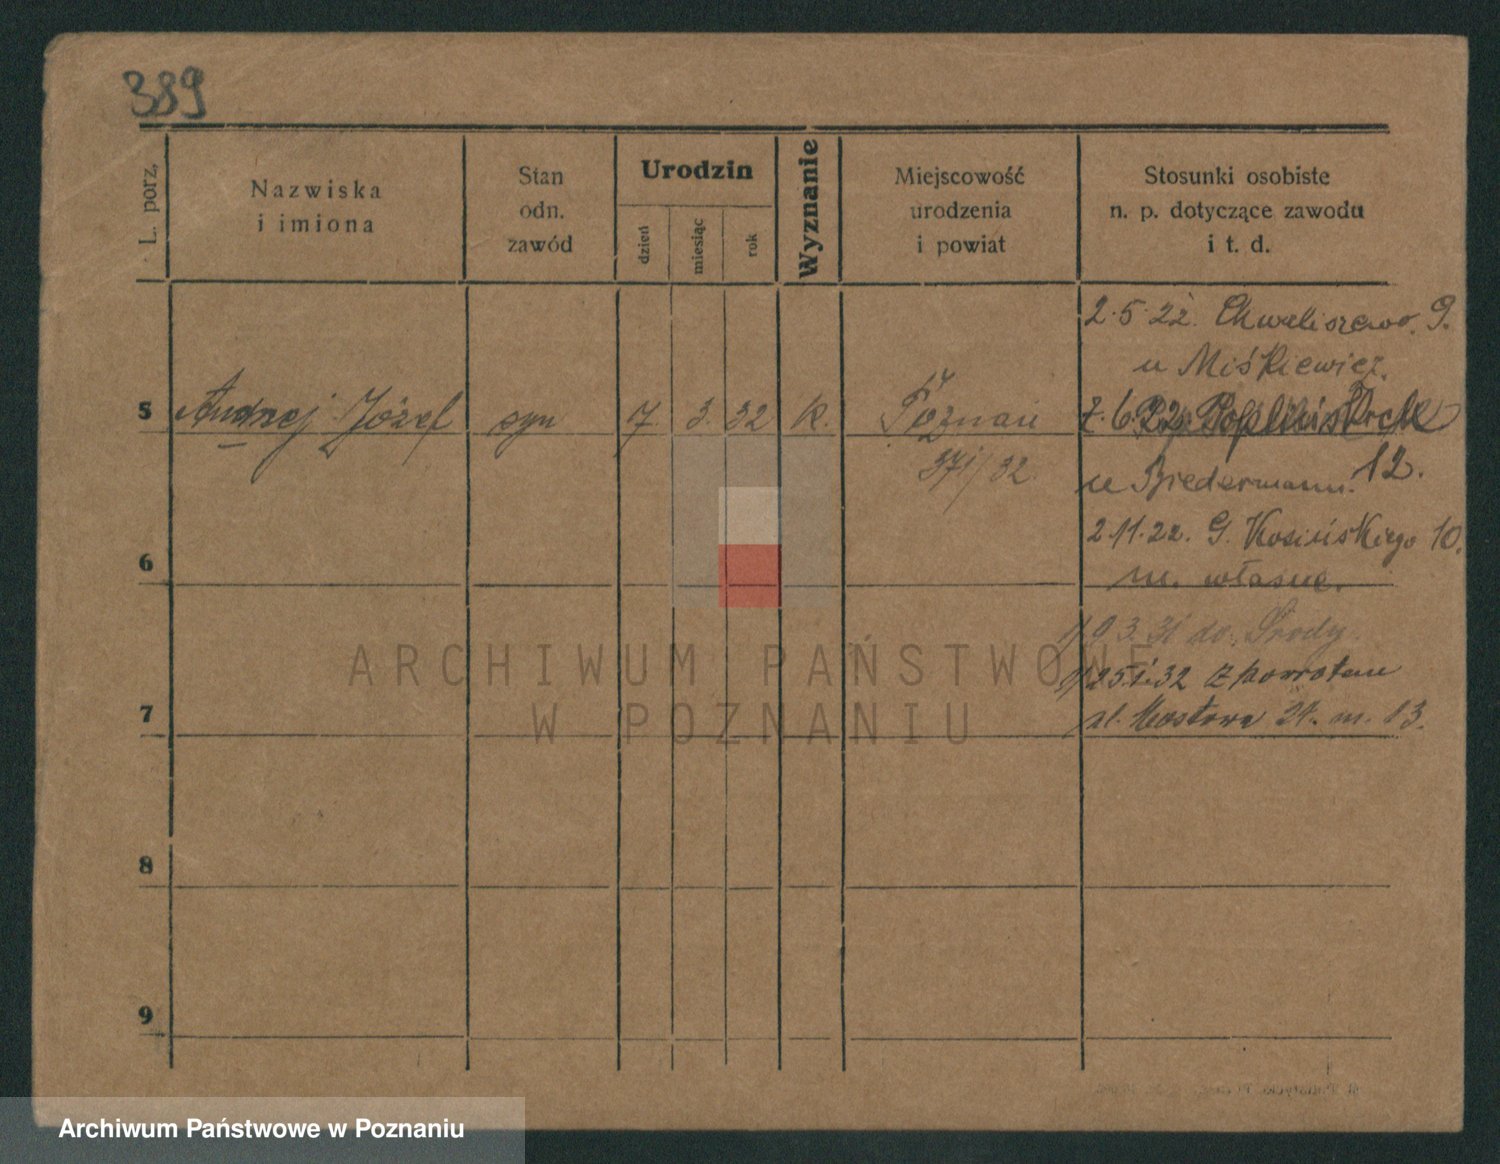 389
L. porz.
Nazwiska
i imiona
Stan
odn.
zawód
Urodzin
dzień
miesiąc
rok
Wyznanie
Miejscowość
urodzenia
i powiat
Stosunki osobiste
n. p. dotyczące zawodu
i t. d.
2.5.22. Chwaliszewo. 9.
u Miśkiewicz.
5 Andrzej Józef syn 7. 3. 32 k. Poznań
371/32.
u Biedermann. 12.
2.11.22. G. Kosińskiego 10.
m. własne.
6
9.3.31 do Środy.
25. 32 z powrotem
ul. Mostowa 24. m. 13.
7
8
9
ARCHIWUM PAŃSTWOWE
W POZNANIU
Archiwum Państwowe w Poznaniu